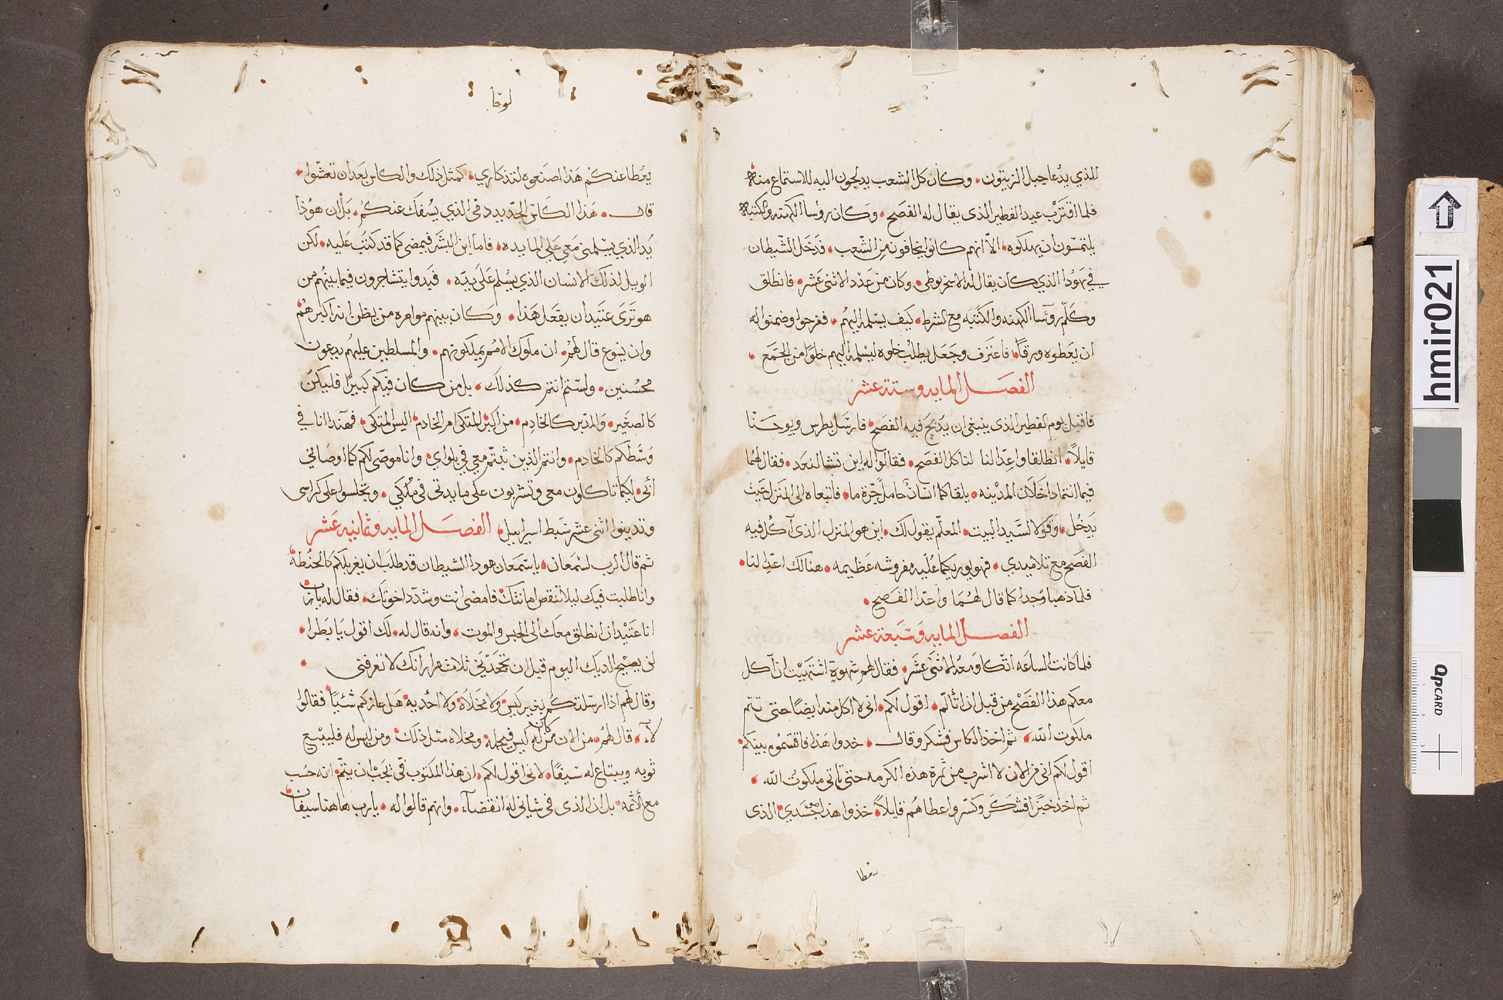 للذي يدعا جبل الزيتون • وكان كل الشعب يدلجون اليه للاستماع منه •
فلما اقترب عيد الفطير الذي يقال له الفصح • وكان روسا الكهنه والكتبه
يلتمسون ان يهلكوه • الا انهم كانوا يخافون من الشعب • فدخل الشيطان
في يهودا الذي كان يقال له الاسخريوطي • وكان من عدد الاثنى عشر • فانطلق
وكلم روسآ الكهنه والكتبه مع الشرط • كيف يسلمه اليهم • ففرحوا وضمنوا له
ان يعطوه ورقًا • فاعترف وجعل يطلب خلوه ليسلمه اليهم خلوًا من الجمع •
الفصل المايه وستة عشر
فاقبل يوم الفطير الذي ينبغي ان يذبح فيه الفصح • فارسل بطرس ويوحنا
قايلًا • انطلقا واعدا لنا لناكل الفصح • فقالا له اين تشا لنعد • فقال لهما
فيما انتما داخلان المدينه • يلقاكما انسان حامل جرة ما • فاتبعاه الى المنزل حيث
يدخل • وقولا لسيد البيت • المعلم يقول لك • اين هو المنزل الذي آكل فيه
الفصح مع تلاميدي • فهو يوريكما عليه مفروشه عظيمه • هنالك اعدا لنا •
فلما ذهبا وجدا كما قال لهما واعدا الفصح •
الفصل المايه وسبعة عشر
فلما كانت الساعه اتكا ومعه الاثنى عشر • فقال لهم شهوة اشتهيت ان آكل
معكم هذا الفصح من قبل ان اتالم • اقول لكم • انى لا اكل منه ايضًا حتى تتم
ملكوت الله • ثم اخذ الكاس فشكر وقال • خدوا هذا فاقتسموه بينكم •
اقول لكم انى من الان لا اشرب من ثمرة هذه الكرمه حتى تاتى ملكوت الله •
ثم اخذ خبزًا فشكر وكسر واعطاهم قايلًا • خذوا هذا جسدي • الذى
يعطا
لوقا
يعطا عنكم هذا اصنعوه لتذكاري • كمثل ذلك والكاس بعد ان تعشوا •
قال • هذا الكاس الجديد دمي الذي يسفك عنكم • بل ان هوذا
يد الذي يسلمنى معى على المايده • فاما ابن البشر فيمضى كما قد كتب عليه • لكن
الويل لذلك الانسان الذي يسلم على يديه • فبدوا يتشاجرون فيما بينهم من
هو ترى عتيد ان يفعل هذا • وكان بينهم موامره من يظن انه اكبرهم •
وان يسوع قال لهم • ان ملوك الامم يملكونهم • والمسلطين عليهم يدعون
محسنين • ولستم انتم كذلك • بل من كان فيكم كبيرًا فليكن
كالصغير • والمدبر كالخادم • من اكبر المتكى ام الخادم • اليس المتكى • فهآنذا انا في
وسطكم كالخادم • وانتم الذين ثبتم معي في بلواي • وانا موصى لكم كما اوصانى
ابى • لكيما تاكلون معى وتشربون على مايدتى في ملكي • وتجلسوا على كراسى
وتدينوا اثنى عشر سبط اسراييل • الفصل المايه وثمانية عشر
ثم قال الرب لسمعان • ياسمعان هودا الشيطان قد طلب ان يغربلكم كالحنطة •
وانا طلبت فيك ليلا تنقص امانتك • فامضى انت وشدد اخوتك • فقال له يارب
انا عتيد ان انطلق معك الى الحبس والموت • وانه قال له • لك اقول يا بطرا •
لن يصيح الديك اليوم قبل ان تجحدنى ثلاث مرار انك لا تعرفنى •
وقال لهم اذا ارسلتكم بغير كيس ولا مخلاة ولا احذيه • هل عازكم شيئًا فقالوا
لآ • قال لهم • من الان من له كيس فيحمله • ومخلاه مثل ذلك • ومن ليس له فليبيع
ثوبه ويبتاع له سيفًا • لانى اقول لكم • ان هذا المكتوب فى يجب ان يتم • انه حسب
مع الاثمه • بل ان الذى فى شانى له انقضآء • وانهم قالوا له • يارب هاهنا سيفان
hmir021
QPCARD